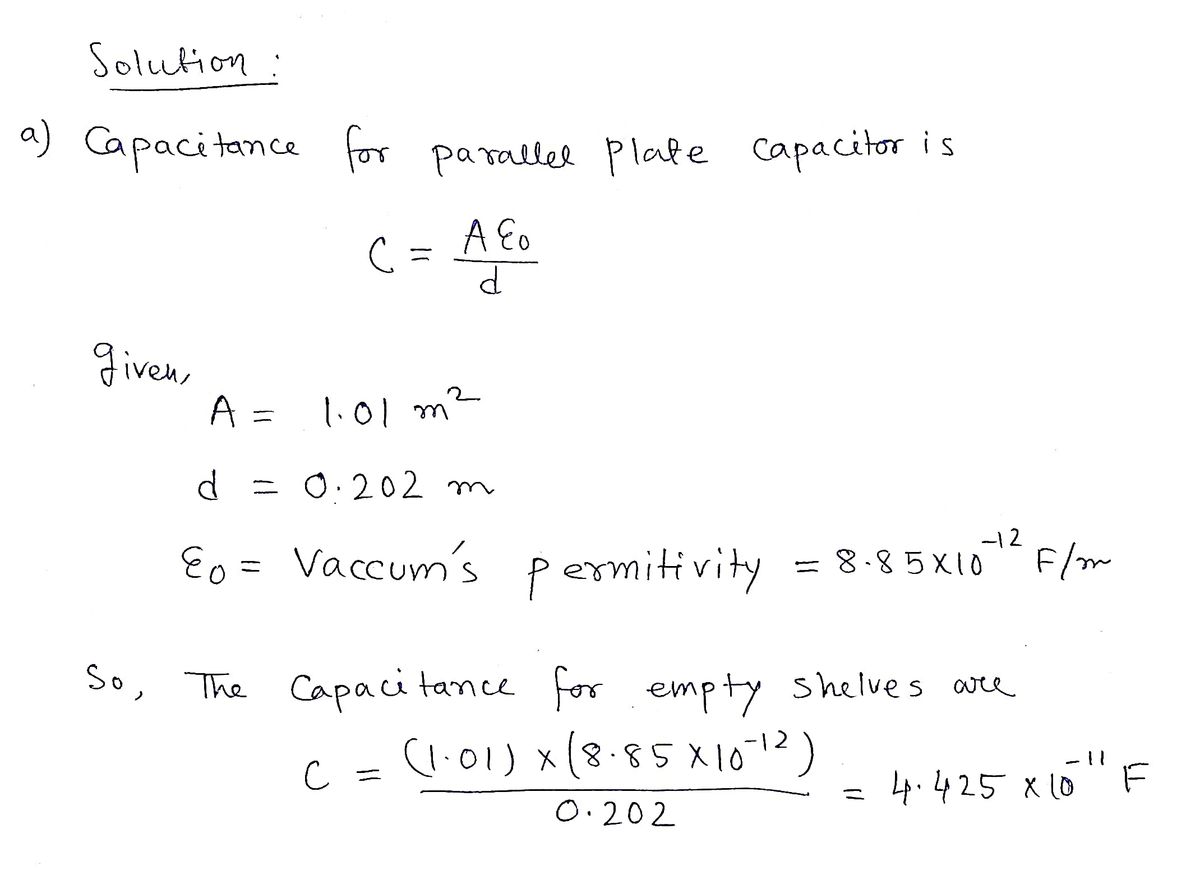 Solution :
a) Capacitance for parallel plate capacitor is
C = Aε₀/d
given,
A = 1.01 m²
d = 0.202 m
ε₀ = Vaccum's permitivity = 8.85×10⁻¹² F/m
So, The Capacitance for empty shelves are
C = (1.01) × (8.85 × 10⁻¹²)/0.202 = 4.425 × 10⁻¹¹ F